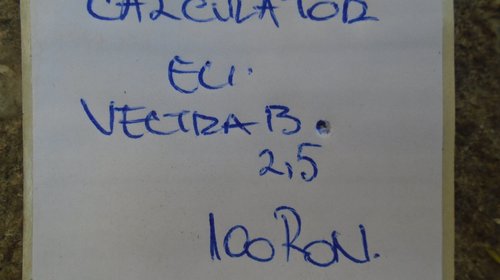 CALCULATOR
ECU.
VECTRA B.
2,5
100 RON.